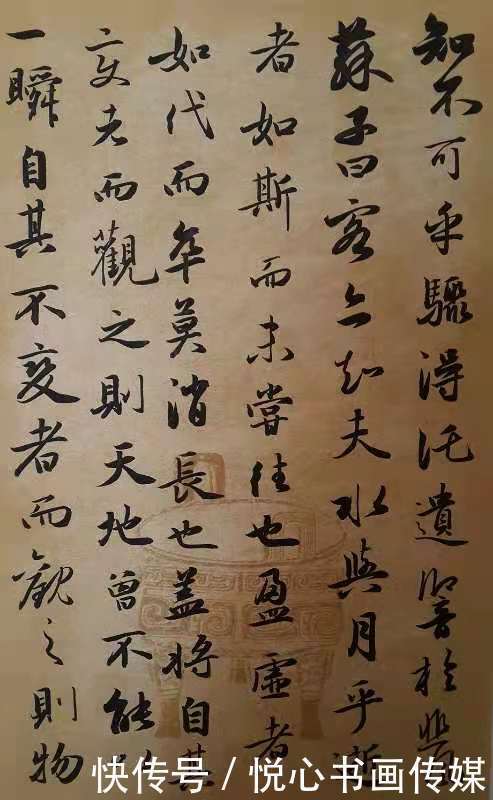 知不可乎驟得託遺響於悲
蘇子曰客亦知夫水與月乎逝
者如斯而未嘗往也盈虛者
如代而卒莫消長也蓋將自其
變者而觀之則天地曾不能
一瞬自其不變者而觀之則物
快传号 / 悦心书画传媒